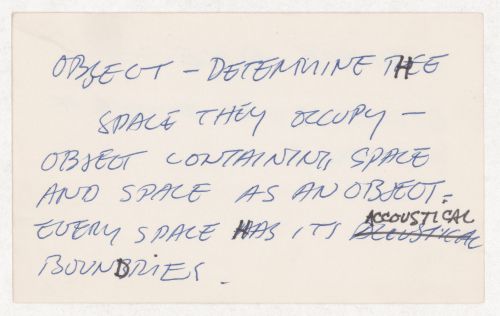 OBJECT – DETERMINE THE
SPACE THEY OCCUPY –
OBJECT CONTAINING SPACE
AND SPACE AS AN OBJECT.
ACCOUSTICAL
EVERY SPACE HAS ITS ACCUSTICAL
BOUNDRIES.